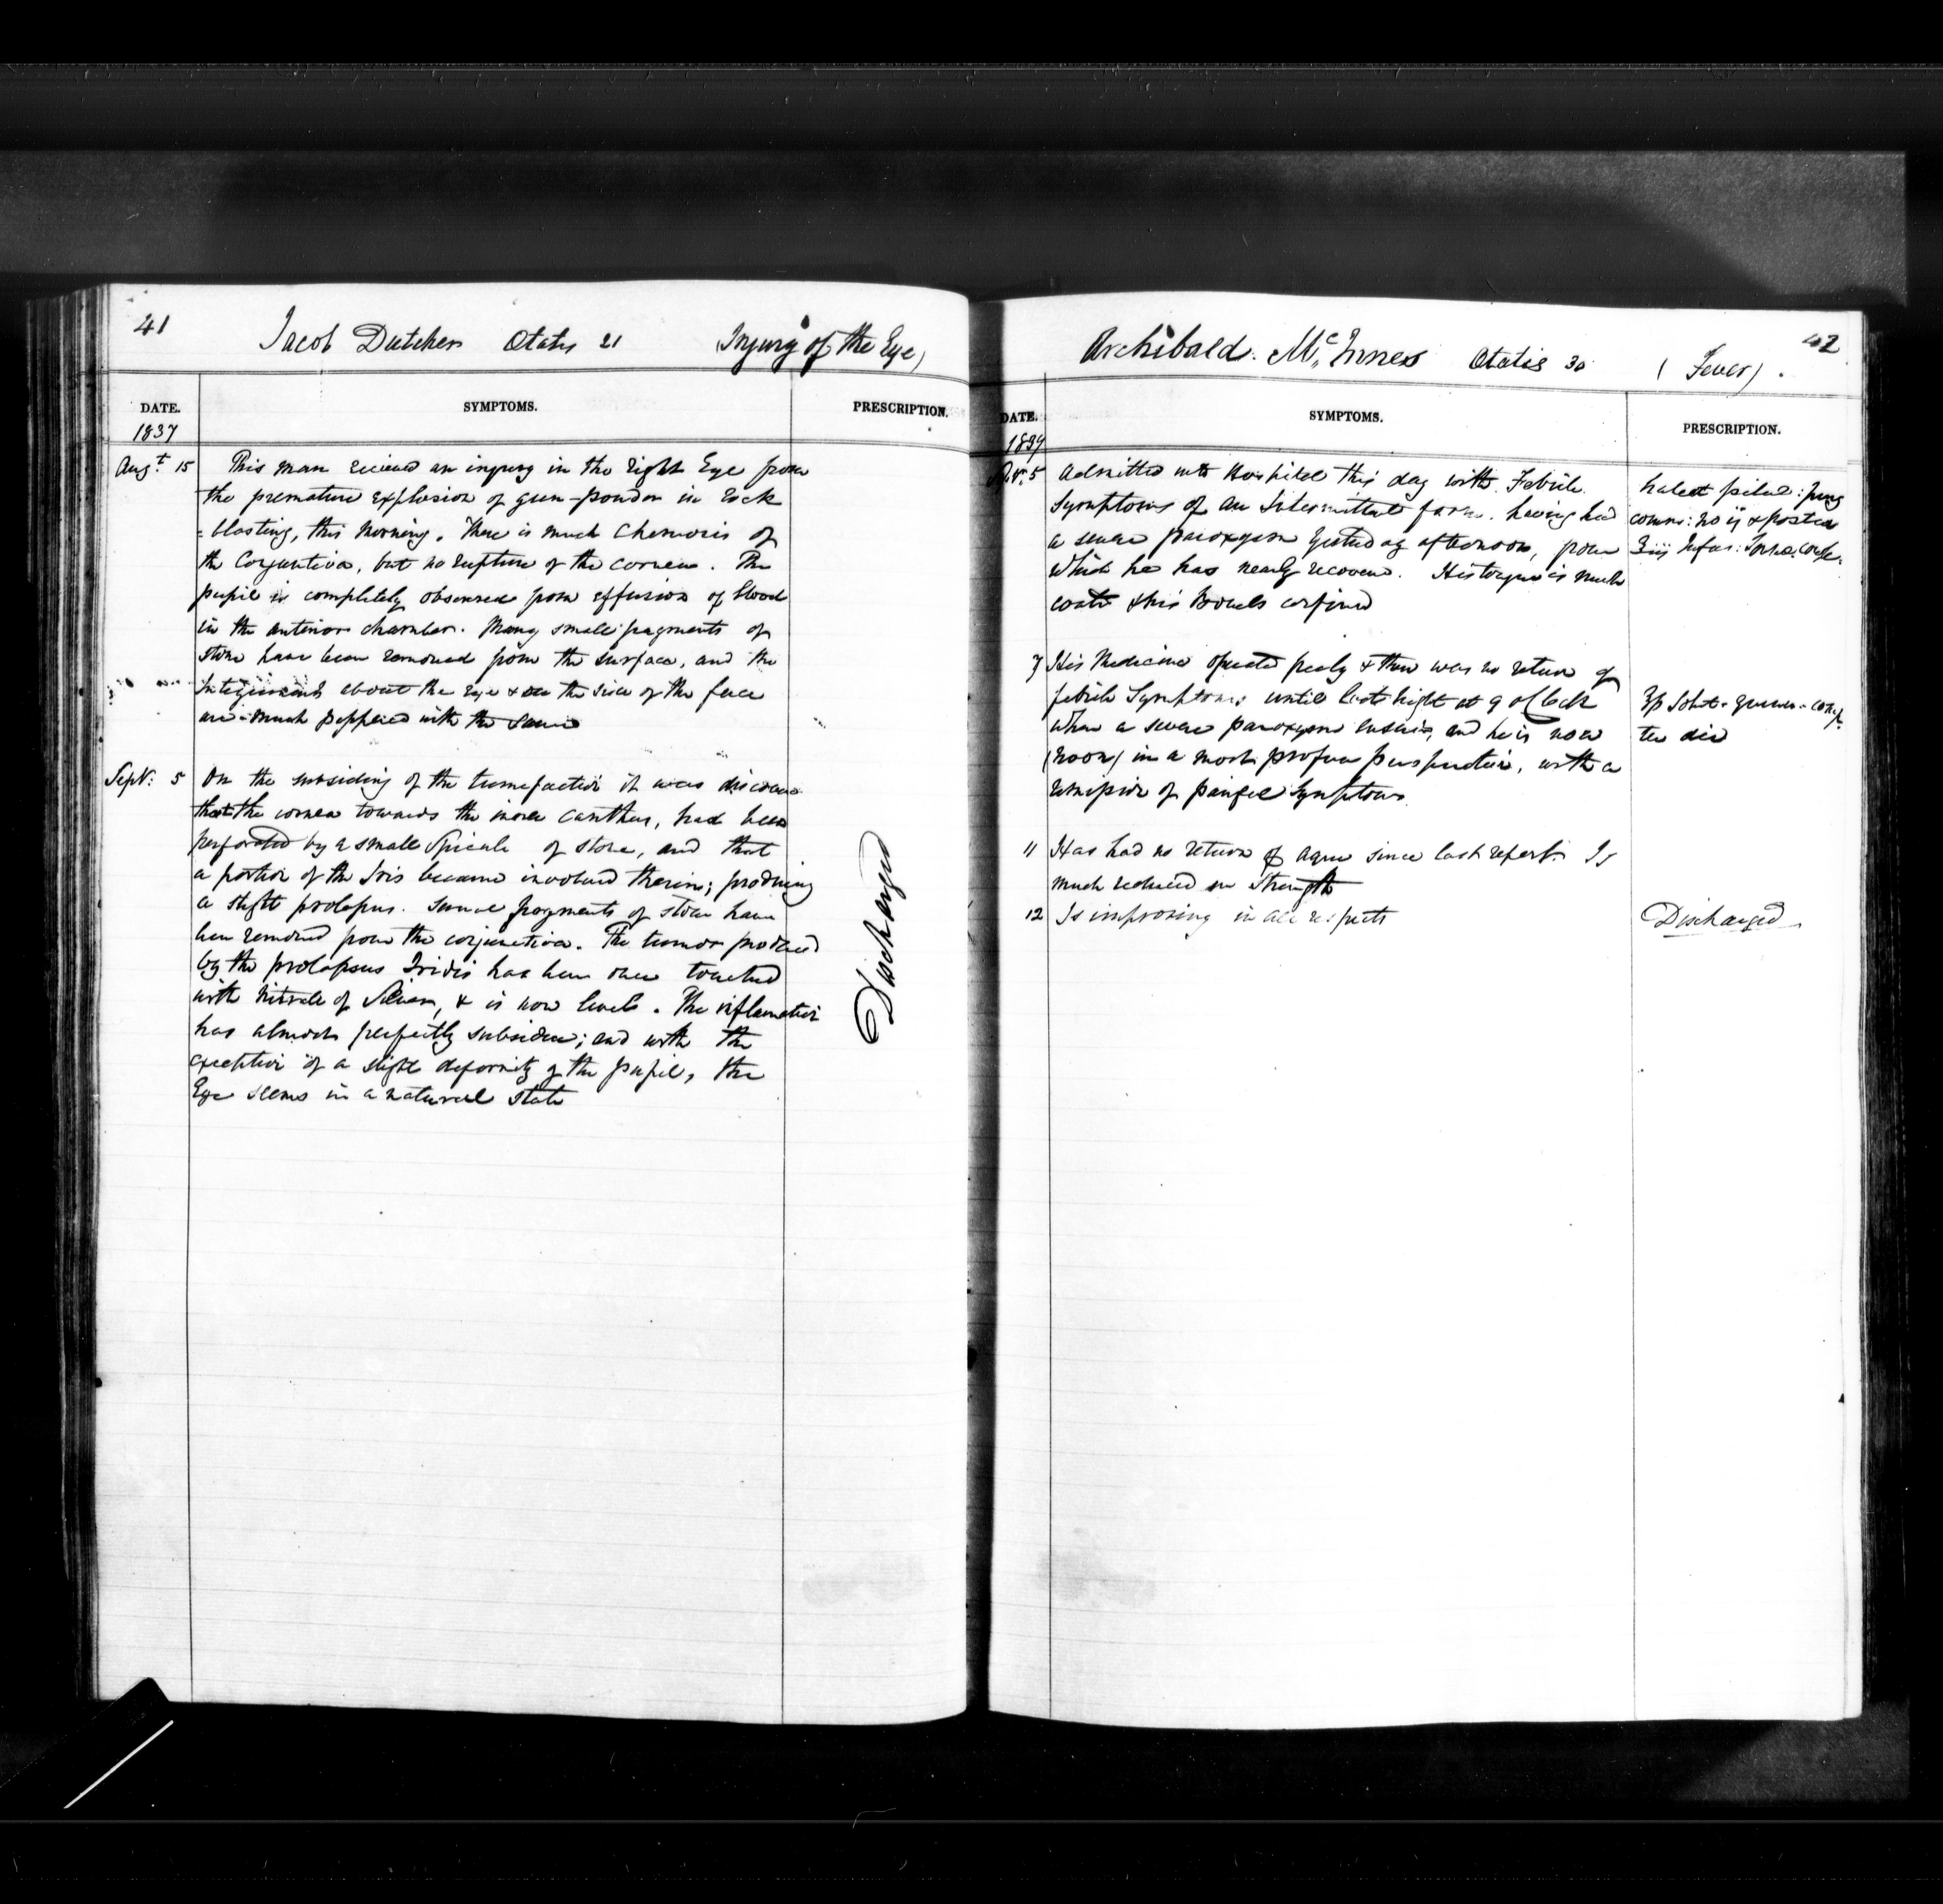 41
Jacob Dutcher Ætatis 21 (Injury of the Eye)
DATE. SYMPTOMS. PRESCRIPTION.
1837
Augt 15 This man recieved an injury in the right Eye from
the premature explosion of gun-powder in rock
= blasting, this morning. There is much Chemosis of
the Conjunctiva, but no rupture of the cornea. The
pupil is completely obscured from effusion of blood
in the anterior chamber. Many small fragments of
stone have been removed from the surface, and the
Integuments about the Eye & on the side of the face
are much peppered with the same
Sept: 5 On the subsiding of the tumefaction it was discovered
that the cornea towards the inner canthus, had been
perforated by a small Spicula of stone, and that
a portion of the Iris became involved therein; producing
a slight prolapsus. Some fragments of stone have
been removed from the conjunctiva. The tumor produced
by the prolapsus Iridis has been once touched
with Nitrate of Silver, & is now level. The inflammation
has almost perfectly subsided; and with the
exception of a slight deformity of the pupil, the
Eye seems in a natural state
Discharged
42
Archibald McInnes Ætatis 30 (Fever).
DATE. SYMPTOMS. PRESCRIPTION.
5 Admitted into Hospital this day with Febrile
symptoms of an Intermittent form, having had
a severe paroxysm yesterday afternoon, from
which he has nearly recovered. His tongue is much
coated & his Bowels confined
habeat pilul: purg
comm: no ij & postea
℥iij Infus: Sennæ. comp.
7 His Medicine operated freely & there was no return of
febrile Symptoms until last night at 9 oClock
when a severe paroxysm ensued, and he is now
(noon) in a most profuse perspiration, with a
remission of painful Symptoms.
comp.
ter die
11 Has had no return of Ague since last report. Is
much reduced in Strength
12 Is improving in all respects
Discharged